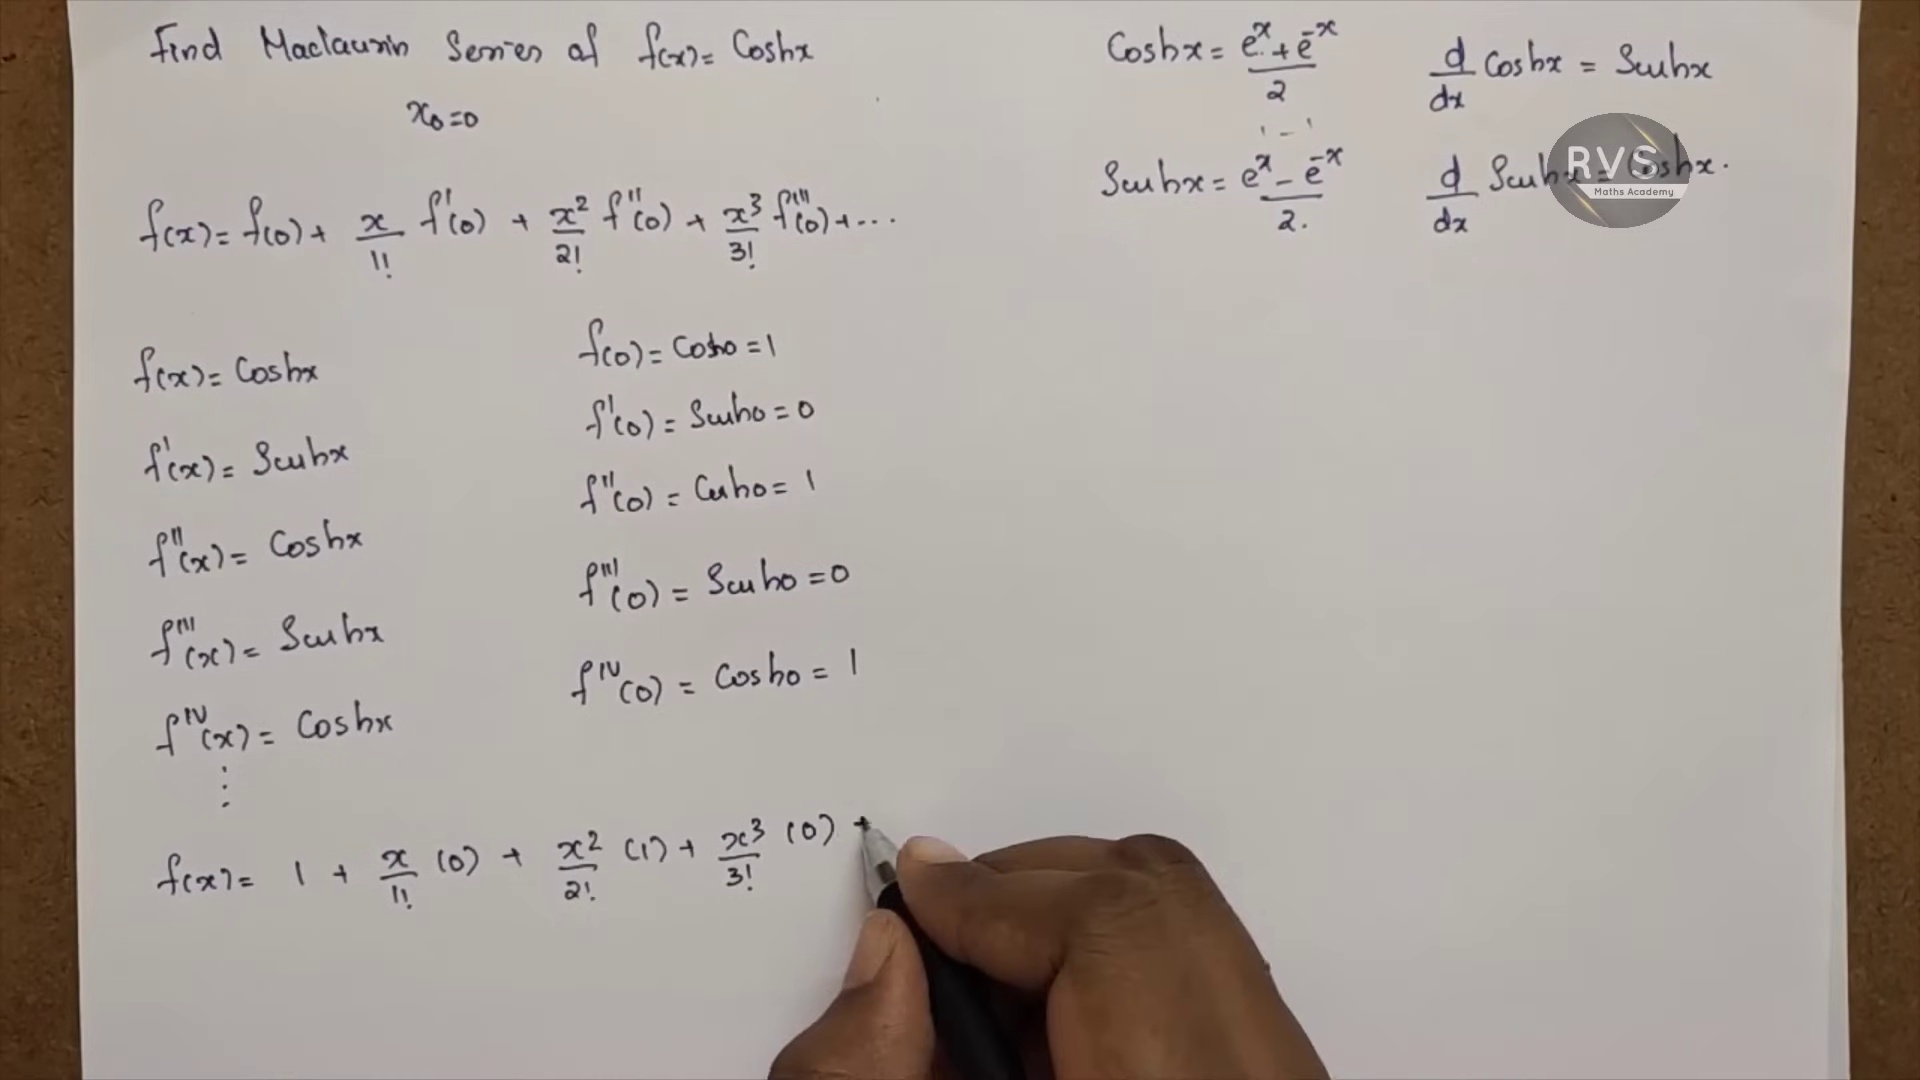 Find Maclaurin Series of f(x) = Coshx
x₀ = 0
f(x) = f(0) + x/1! f'(0) + x²/2! f''(0) + x³/3! f'''(0) + ...
f(x) = Coshx
f'(x) = Sinhx
f''(x) = Coshx
f'''(x) = Sinhx
f^IV(x) = Coshx
⋮
f(0) = Cosh0 = 1
f'(0) = Sinh0 = 0
f''(0) = Cosh0 = 1
f'''(0) = Sinh0 = 0
f^IV(0) = Cosh0 = 1
f(x) = 1 + x/1! (0) + x²/2! (1) + x³/3! (0) +
Coshx = (e^x + e^-x)/2
Sinhx = (e^x - e^-x)/2.
d/dx Coshx = Sinhx
d/dx Sinhx = Coshx.
RVS
Maths Academy